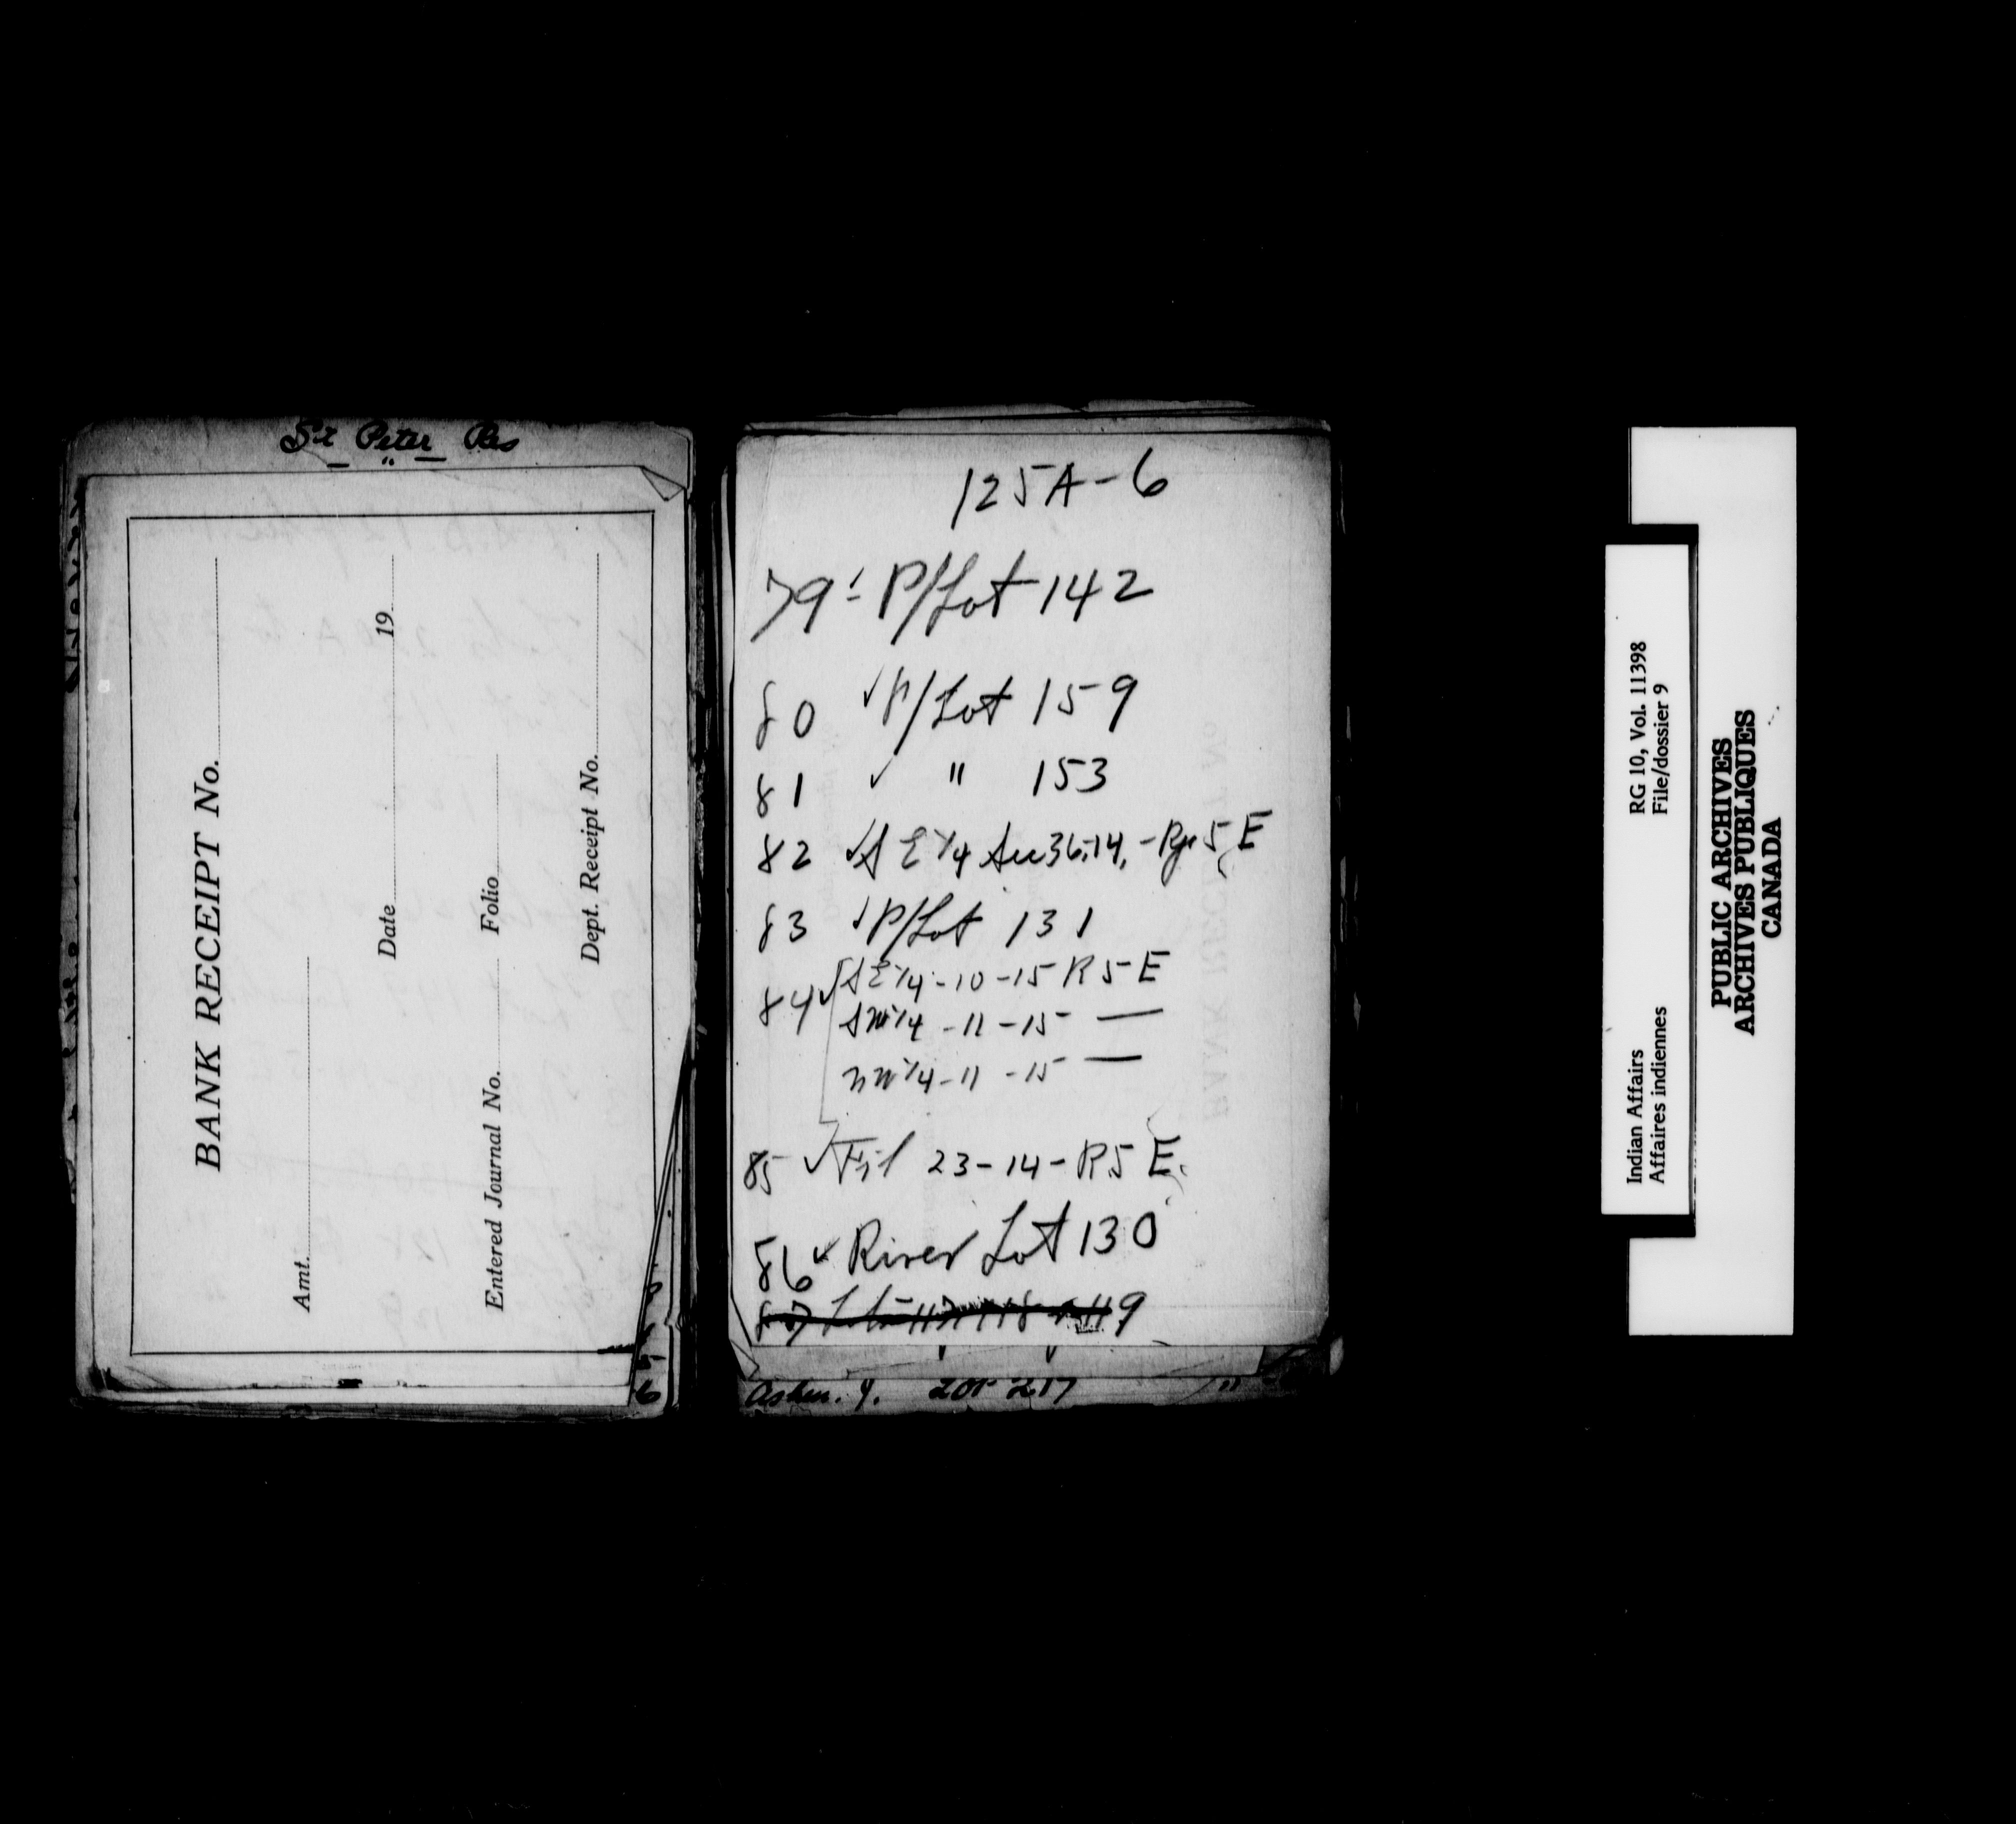 St Peter Res
BANK RECEIPT No.
Amt.
Date 19
Entered Journal No. Folio
Dept. Receipt No.
6
125A-6
79 ✓ P/Lot 142
80 ✓ P/Lot 159
81 ✓ " 153
82 ✓ S E 1/4 Sec 36-14,-Rge 5 E
83 ✓ P/Lot 131
84 ✓ S E 1/4 - 10 - 15 R 5 E
S W 1/4 - 11 - 15 —
N W 1/4 - 11 - 15 —
85 ✓ 23 - 14 - R 5 E.
86 ✓ River Lot 130
87 Lots 117 118 119
Lot 217
Indian Affairs RG 10, Vol. 11398
Affaires indiennes File/dossier 9
PUBLIC ARCHIVES
ARCHIVES PUBLIQUES
CANADA